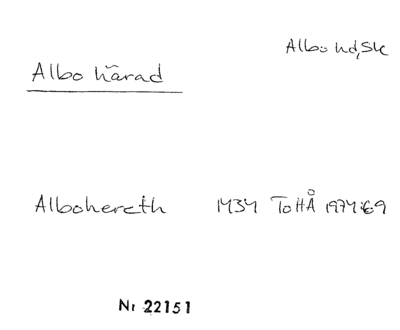 Albo hd, Sk
Albo härad
Albohereth 1434 ToHÅ 1974:69
Nr 22151